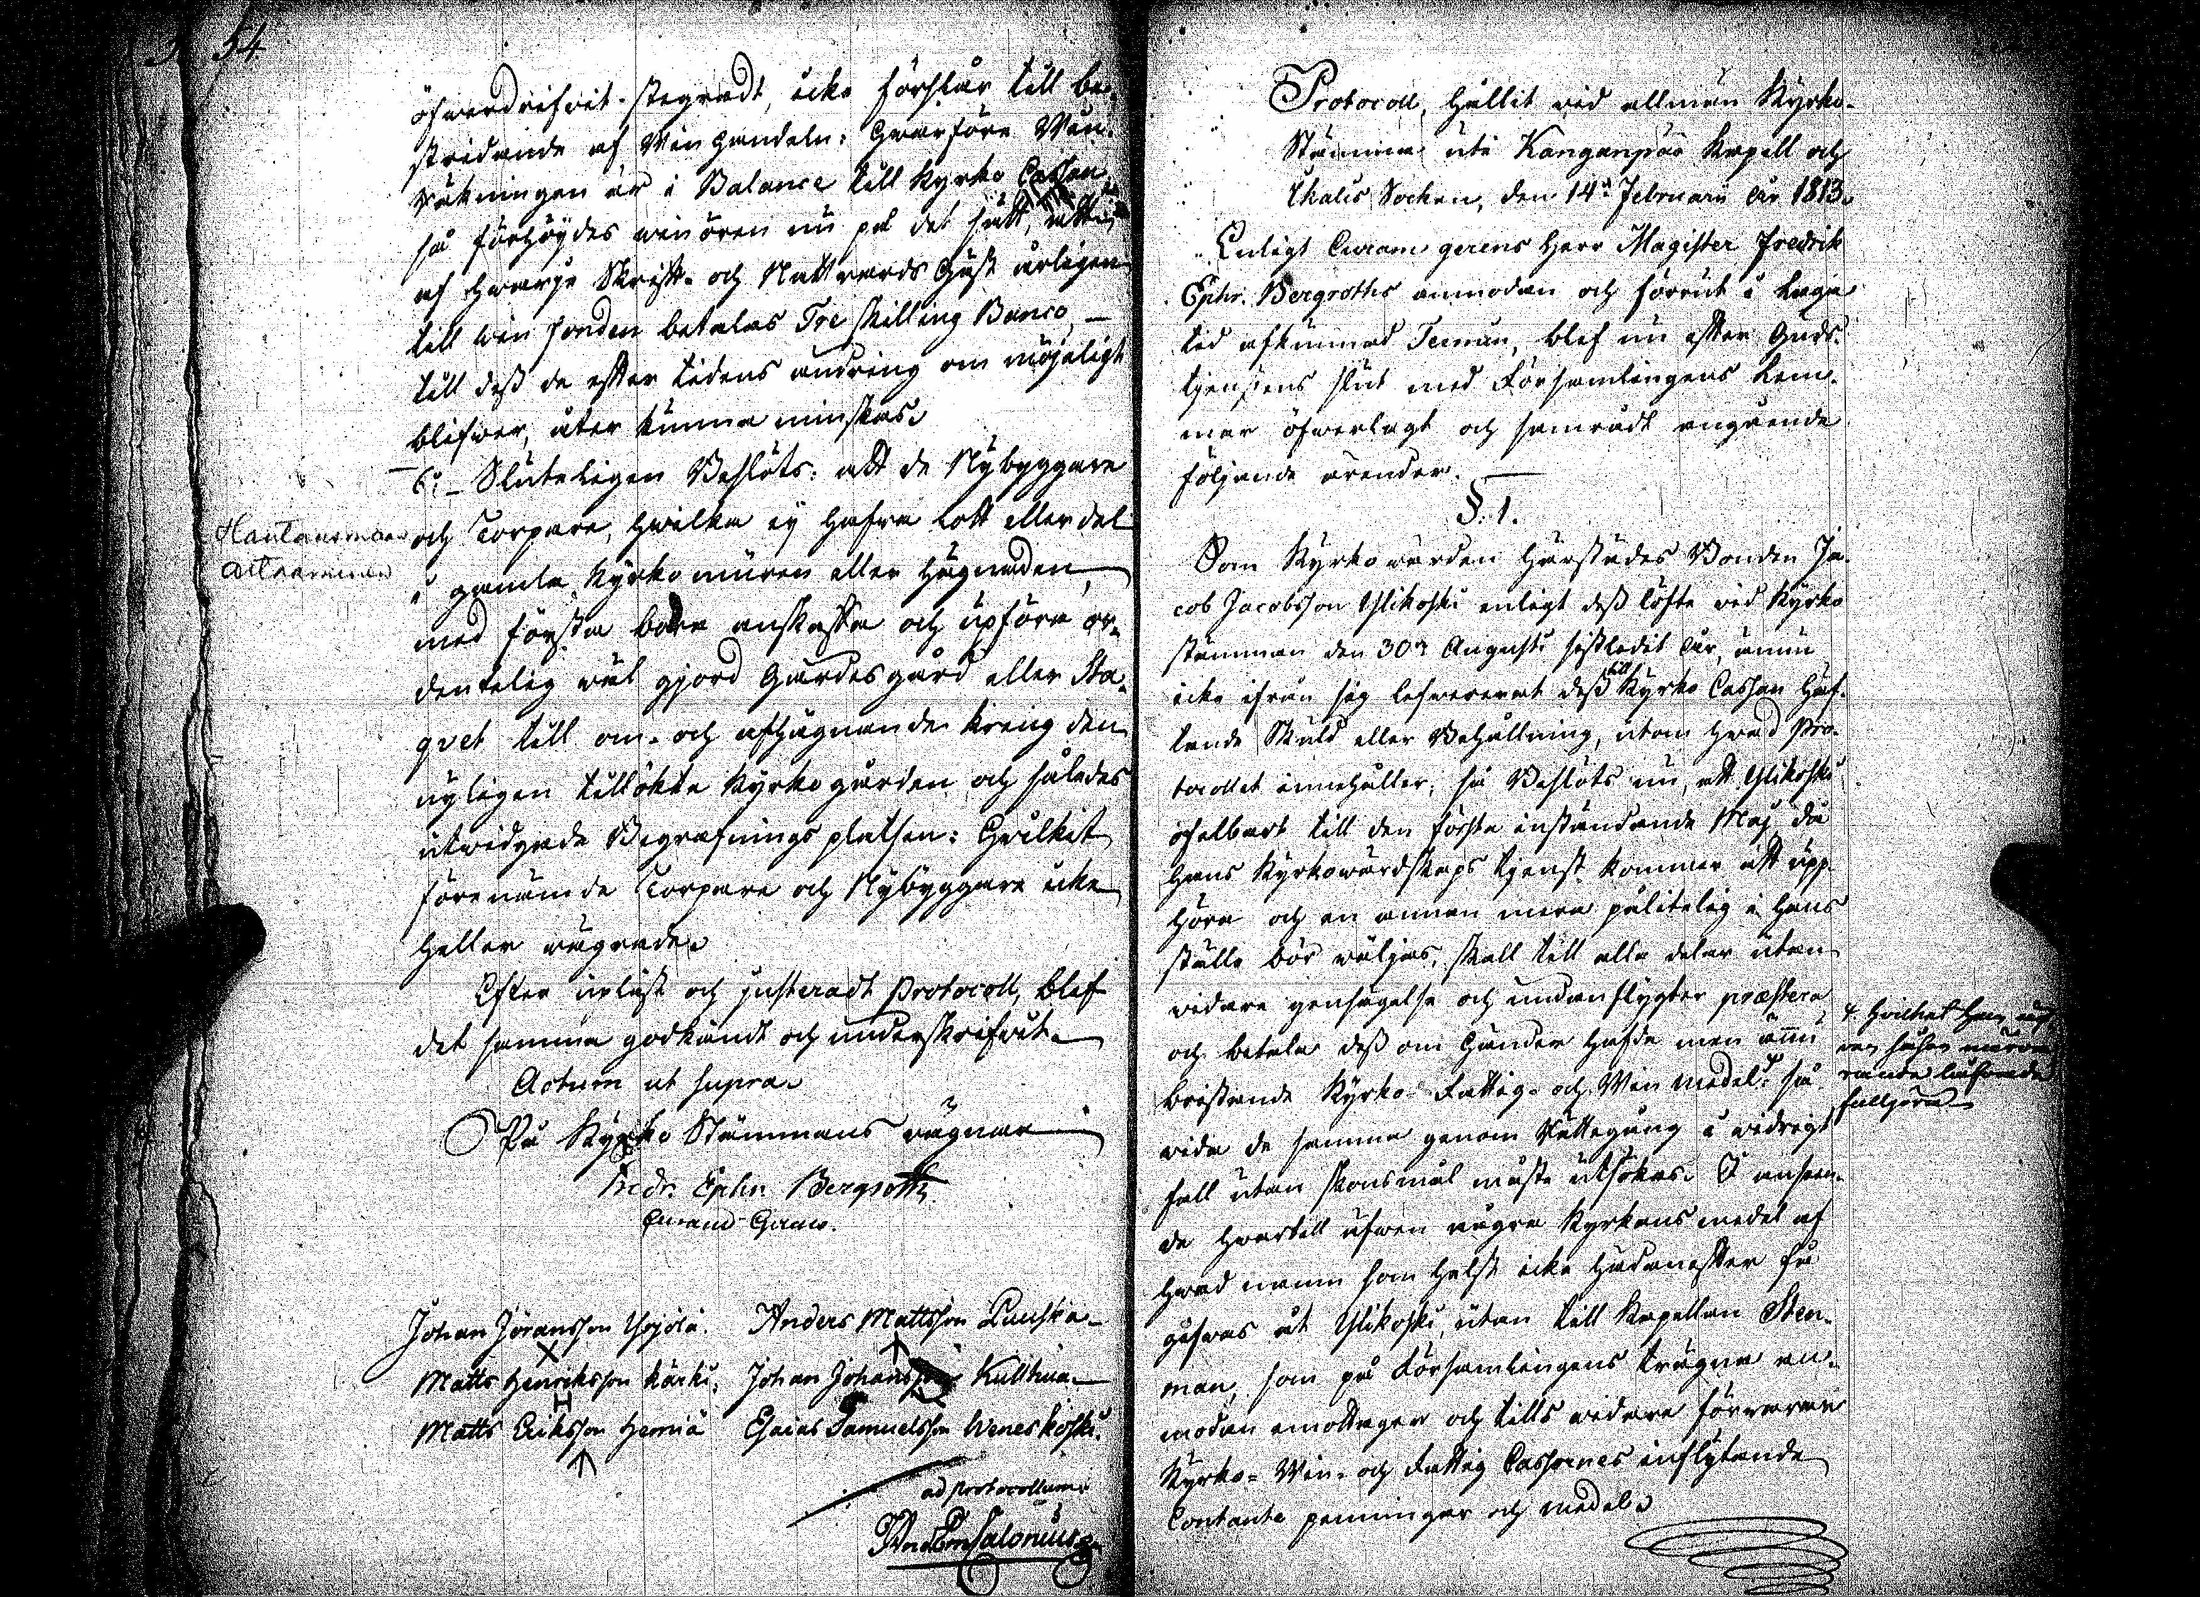 54.
öfwerdrifvit stegradt, icke förslår till be-
stridande af Winhandeln: Hwarföre Win-
räkningen är i Balance till Kyrko Cassan,
så förhöydes winören nu på det sätt, att
af hwarje Skrift- och Nattwards Gäst årligen
till win fonden betalas Tre skilling Banco, —
till dess de efter tidens ändring om möjeligt
blifwer, åter kunna minskas.
6:o Sluteligen Beslöts: att de Nybyggare
Hautausmaan
aitaaminen
och Torpare, hwilka ej hafva lott eller del
i gamla Kyrko muren eller hägnaden,
med första böra anskaffa och upföra or-
dentelig wäl gjord Gärdesgård eller Sta-
qvet till om- och afhägnande kring den
nyligen tillökta Kyrkogården och således
utwidgade Begrafnings platsen: Hwilket
förenämde Torpare och Nybyggare icke
heller wägrade.
Efter upläst och justeradt Protocoll, blef
det samma godkändt och underskrifvit.
Actum ut supra.
På Kyrko Stämmans wägnar
Fredr. Ephr. Bergroth
Curam Gerens.
Johan Jöransson Yrjölä. Anders Mattsson Luuska
Matts Henriksson Kärki. Johan Johansson Kullhua
Matts Eriksson Heniä Esaias Samuelsson Weneskoski.
ad protocollum
And. Em. Salonius
Protocoll, hållit wid allmän Kyrko-
Stämma uti Kanganpää Kapell och
Ikalis Socken, den 14de Februarii år 1813.
Enligt Curam gerens Herr Magister Fredrik
Ephr. Bergroths anmodan och förrut i laga
tid afkunnad Termin, blef nu efter Guds-
tjenstens slut med Församlingens Lem-
mar öfwerlagt och samrådt angående
följande ärender.
§. 1.
Som Kyrkowärden härstädes Bonden Ja-
cob Jacobsson Ylikoski enligt dess löfte wid Kyrko
stämman den 30de Augusti sistledit år, ännu
icke ifrån sig lefwererat dess till Kyrko Cassan häf-
tande Skuld eller Behållning, utom hwad Pro-
tocollet innehåller; så Beslöts nu, att Ylikoski
ofelbart till den första instundande Maj då
hans Kyrkowärdskaps tjenst kommer att upp-
höra och en annan mera pålitelig i hans
ställe bör wäljas, skall till alla delar utan
widare gensägelse och undanflygter præstera
och betala dess om händer hafda men ännu
bristande Kyrko- Fattig- och Win medel: så
wida de samma genom Rättegång i widrigt
fall utan skonsmål måste utsökas. I anseen-
de hwartill äfwen några Kyrkans medel af
hwad namn som helst icke hädanefter få
gifwas åt Ylikoski, utan till Kapellan Sten-
man, som på Församlingens trägna an-
modan emottager och tills widare förwarar
Kyrko- Win- och Fattig Cassornes inflytande
Contante penningar och medel.
hwilket han